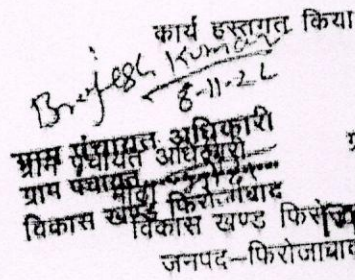 कार्य हस्तगत किया
Brejesh Kumar
8-11-22
ग्राम पंचायत अधिकारी
ग्राम पंचायत अधिकारी
ग्राम पंचायत
विकास खण्ड फिरोजाबाद
विकास खण्ड
जनपद-फिरोजाबाद